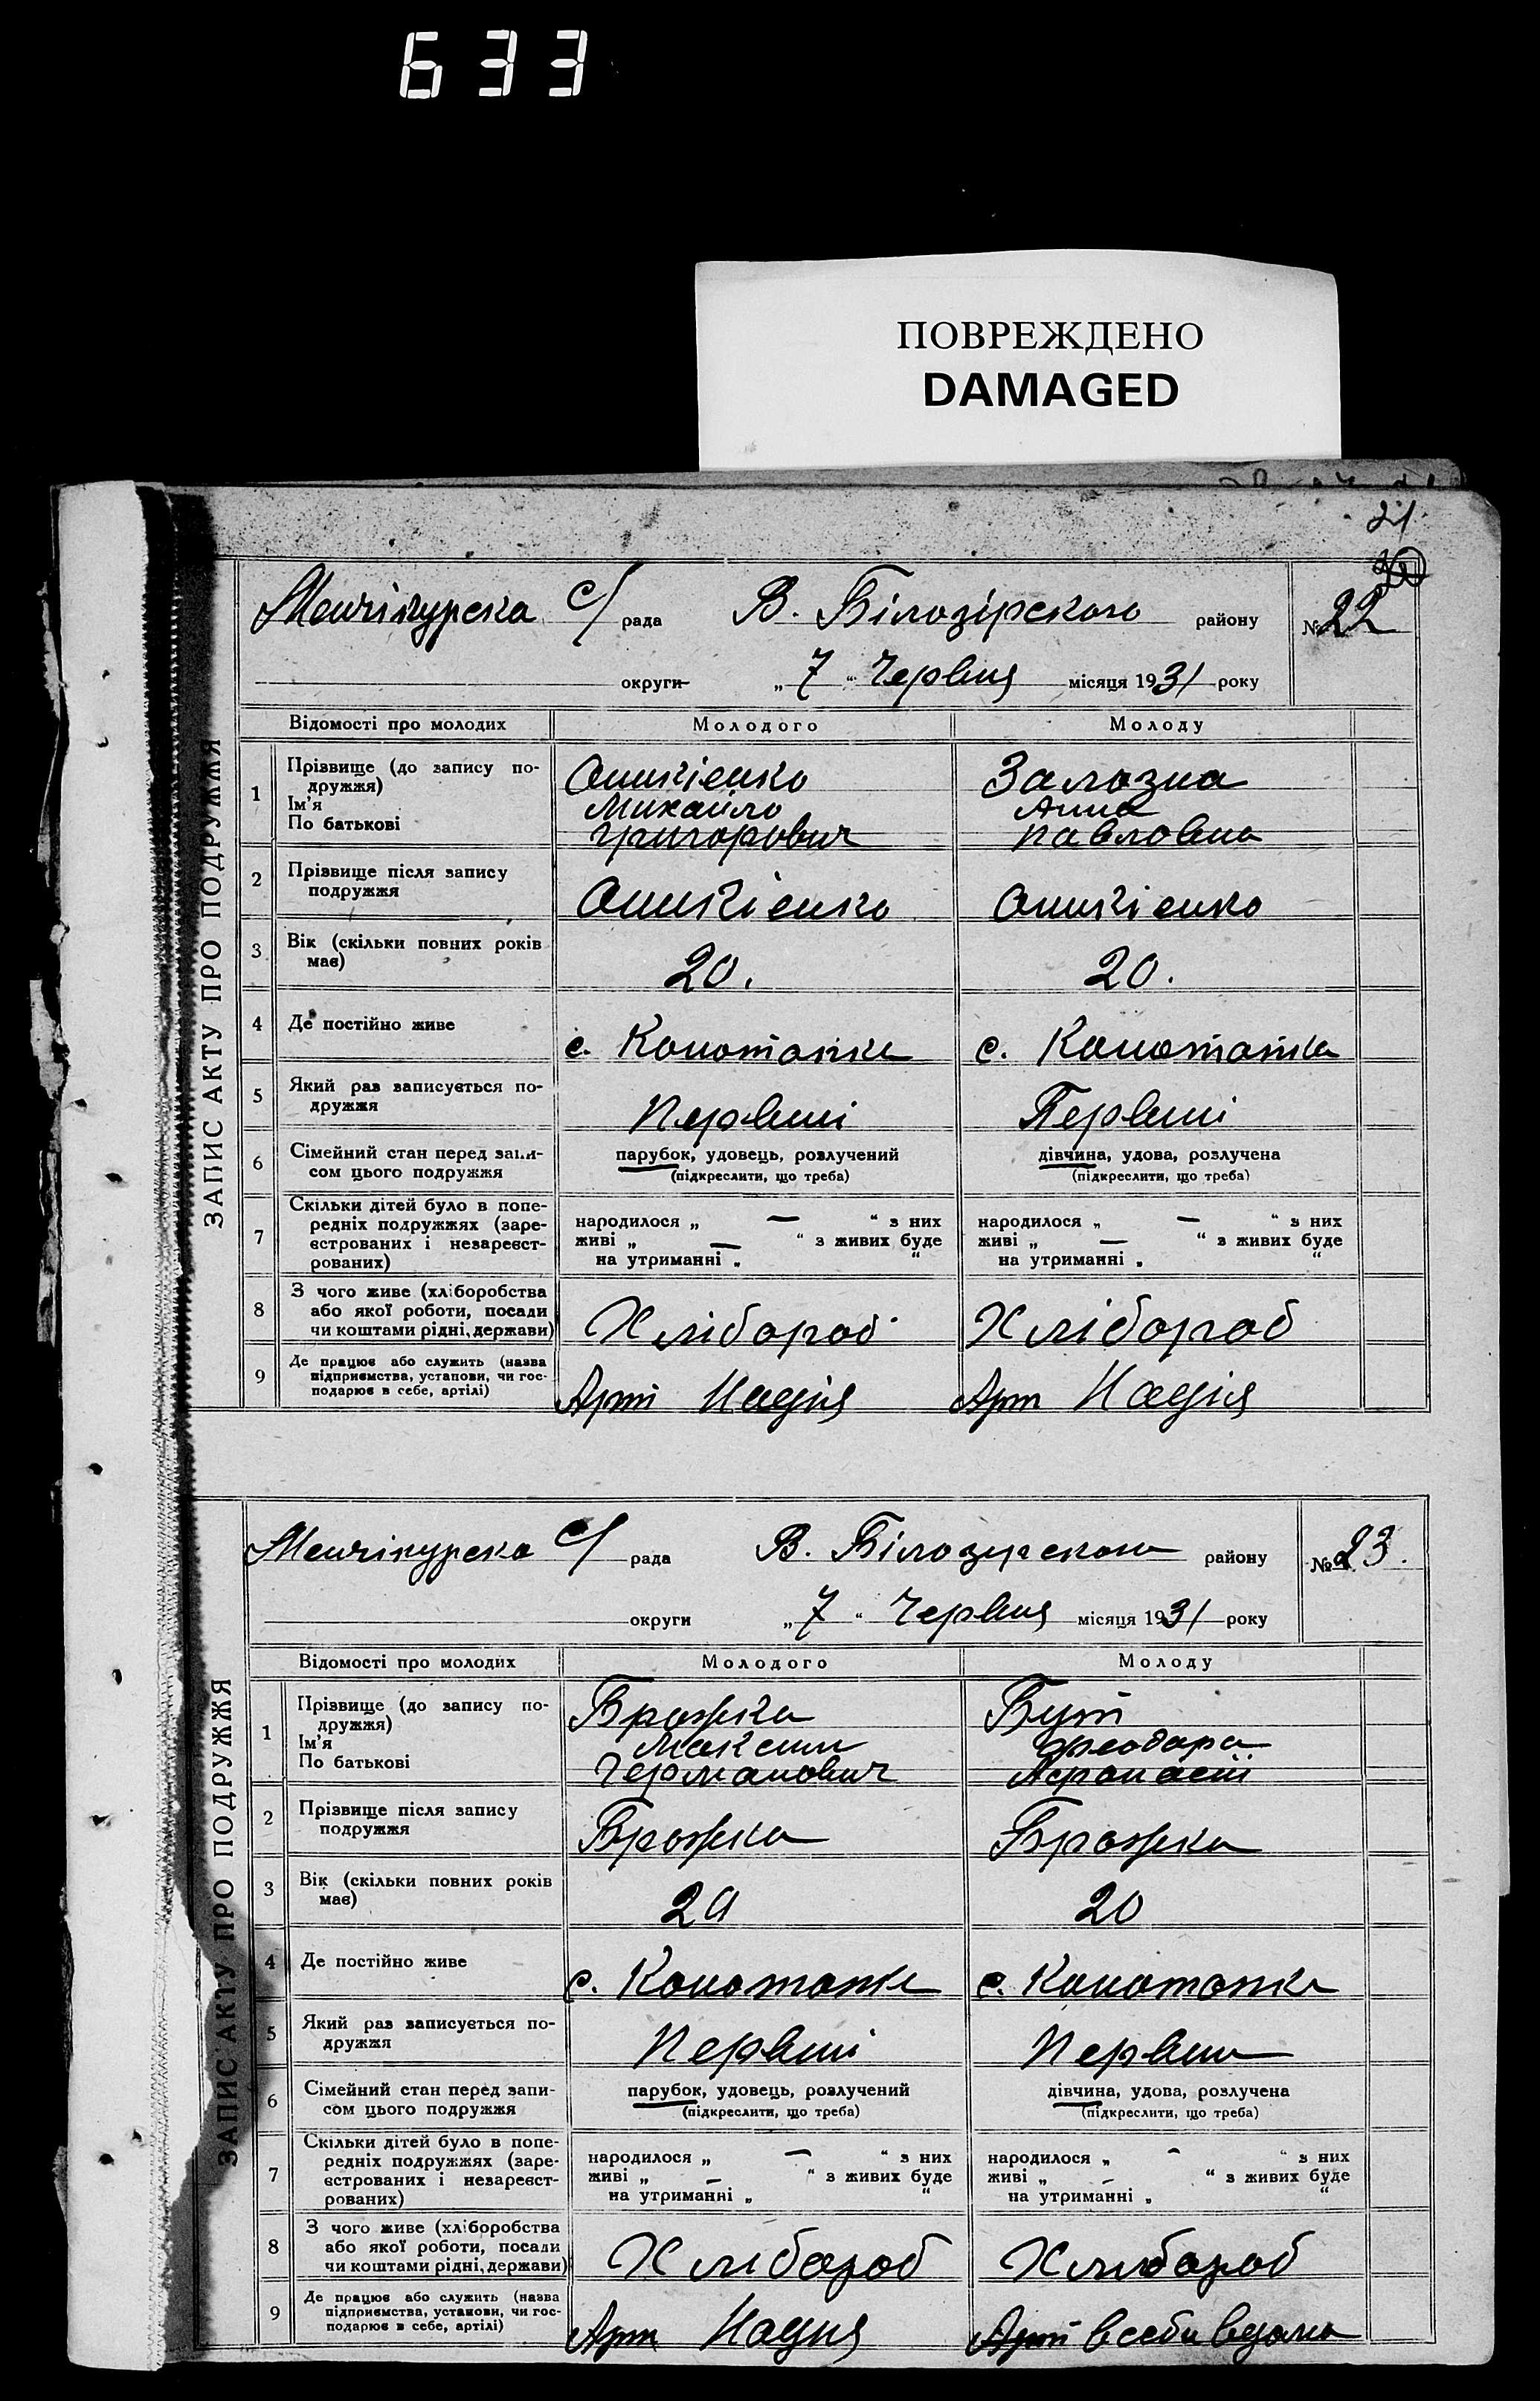 633
ПОВРЕЖДЕНО
DAMAGED
21
ЗАПИС АКТУ ПРО ПОДРУЖЖЯ
Менчікурска с/ рада В. Білозірского району № 22
округи „ 7 “ Червня місяця 1931 року
Відомості про молодих Молодого Молоду
1 Прізвище (до запису по-
дружжя)
Ім'я
По батькові
Оникієнко Залозна
Михайло Анна
Григорович Павловна
2 Прізвище після запису
подружжя
Оникієнко Оникієнко
3 Вік (скільки повних років
має)
20. 20.
4 Де постійно живе
с. Конотопка с. Конотопка
5 Який раз записується по-
дружжя
Первий Первий
6 Сімейний стан перед запи-
сом цього подружжя
парубок, удовець, розлучений дівчина, удова, розлучена
(підкреслити, що треба) (підкреслити, що треба)
7 Скільки дітей було в попе-
редніх подружжях (заре-
єстрованих і незареєст-
рованих)
народилося „ — “ з них народилося „ — “ з них
живі „ — “ з живих буде живі „ — “ з живих буде
на утриманні „ “ на утриманні „ “
8 З чого живе (хліборобства
або якої роботи, посади
чи коштами рідні, держави)
Хлібороб Хлібороб
9 Де працює або служить (назва
підприємства, установи, чи гос-
подарює в себе, артілі)
Арт Надія Арт Надія
ЗАПИС АКТУ ПРО ПОДРУЖЖЯ
Менчікурска с/ рада В. Білозирского району № 23.
округи „ 7 “ Червня місяця 1931 року
Відомості про молодих Молодого Молоду
1 Прізвище (до запису по-
дружжя)
Ім'я
По батькові
Бражка Бут
Максим Феодора
Германович
2 Прізвище після запису
подружжя
Бражка Бражка
3 Вік (скільки повних років
має)
20
4 Де постійно живе
с. Конотопка с. Конотопка
5 Який раз записується по-
дружжя
Первий Перви
6 Сімейний стан перед запи-
сом цього подружжя
парубок, удовець, розлучений дівчина, удова, розлучена
(підкреслити, що треба) (підкреслити, що треба)
7 Скільки дітей було в попе-
редніх подружжях (заре-
єстрованих і незареєст-
рованих)
народилося „ — “ з них народилося „ — “ з них
живі „ — “ з живих буде живі „ — “ з живих буде
на утриманні „ “ на утриманні „ “
8 З чого живе (хліборобства
або якої роботи, посади
чи коштами рідні, держави)
Хлібороб Хлибороб
9 Де працює або служить (назва
підприємства, установи, чи гос-
подарює в себе, артілі)
Арт Надия Арт в себи вдома